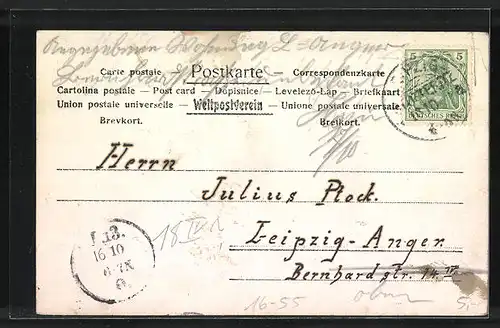 Angegebene Wohnung L=Anger
Carte postale — Postkarte — Correspondenzkarte
Cartolina postale — Post card — Dopisnice — Levelező-Lap — Briefkaart
Union postale universelle — Weltpostverein — Unione postale universale
Brevkort. Breikort.
5 5
DEUTSCHES REICH
7/10
Herrn
Julius Plock.
Leipzig-Anger.
Bernhardstr. 14 IV
L 13.
16 10
6-7 N
18 IV 1
oben
16-55
5,-